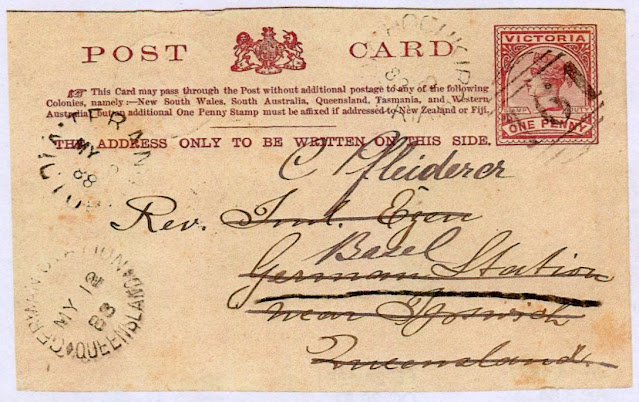 POST CARD
VICTORIA
ONE PENNY
☞ This Card may pass through the Post without additional postage to any of the following
Colonies, namely:—New South Wales, South Australia, Queensland, Tasmania, and Western
Australia; but an additional One Penny Stamp must be affixed if addressed to New Zealand or Fiji.
THE ADDRESS ONLY TO BE WRITTEN ON THIS SIDE.
MY
88
C Pfleiderer
Rev.
Basel
German Station
near Ipswich
Queensland.
GERMAN STATION
MY 12
88
QUEENSLAND